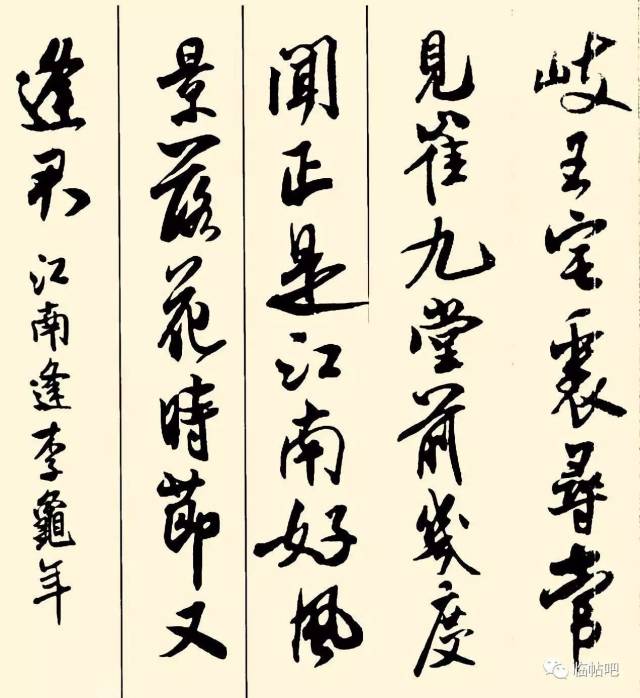 岐王宅裏尋常
見崔九堂前幾度
聞正是江南好風
景落花時節又
逢君 江南逢李龜年
临帖吧